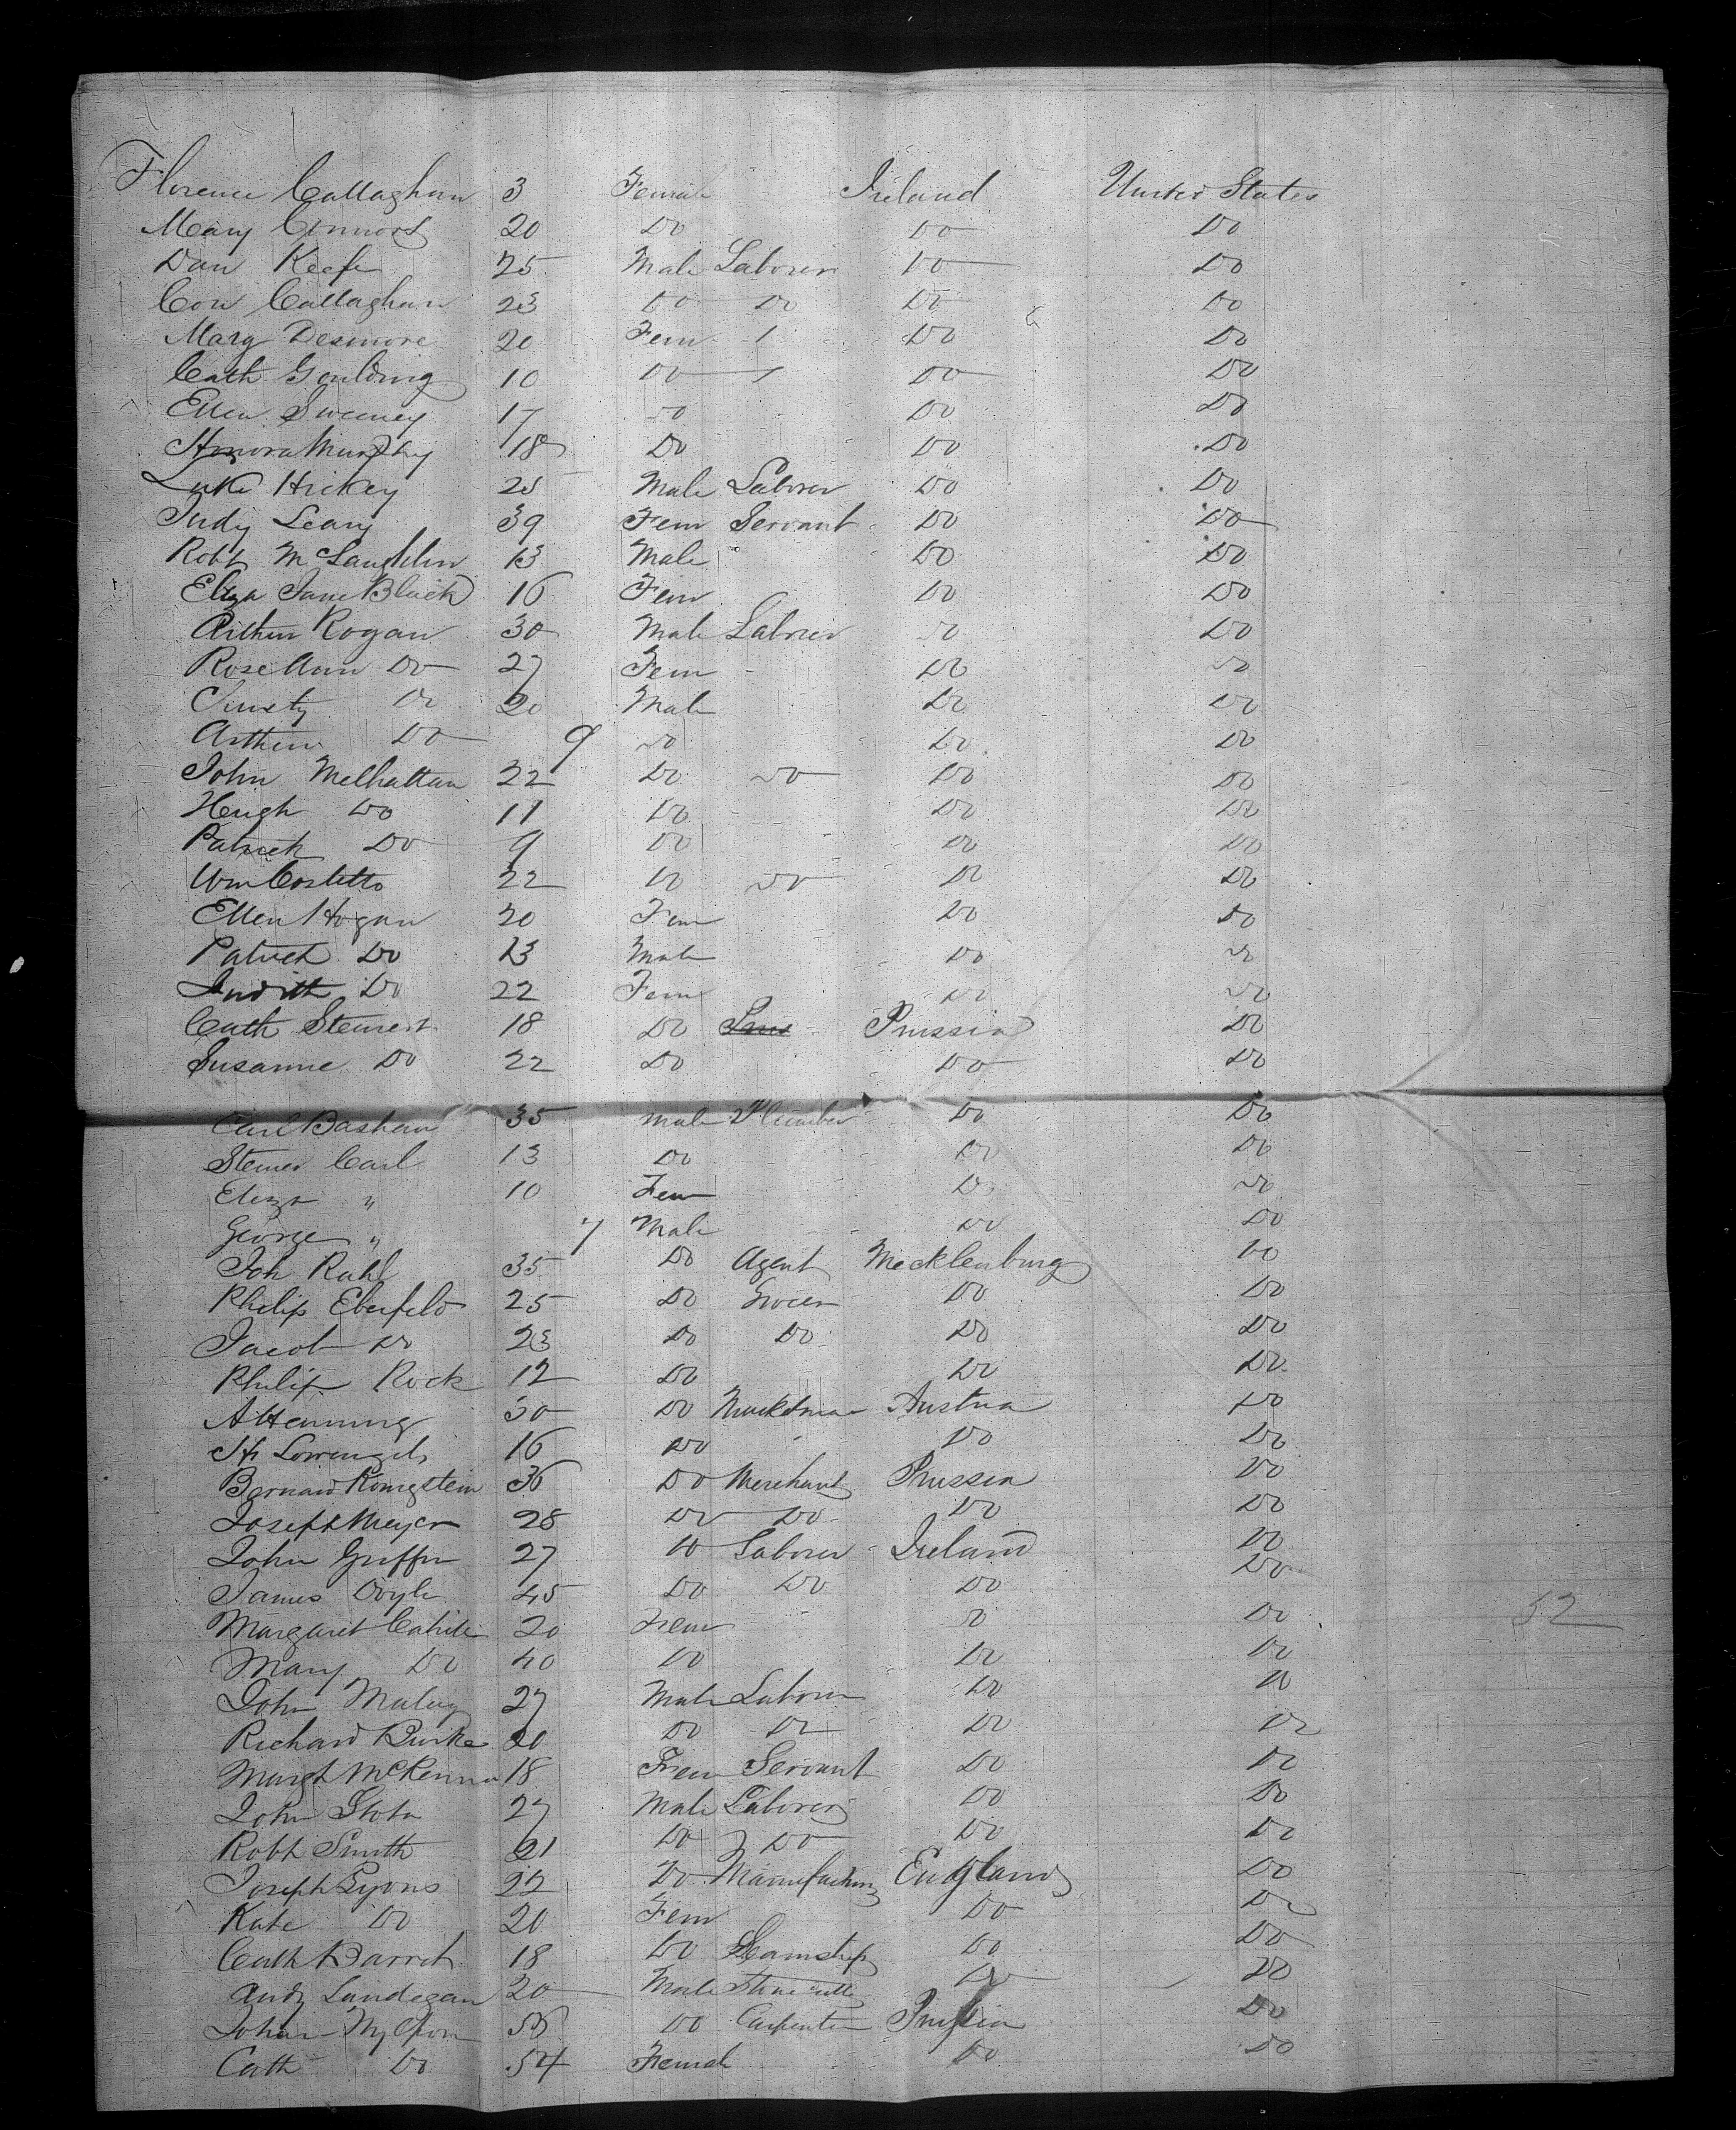 Florence Callaghan 3 Female Ireland United States
Mary Connors 20 Do Do Do
Dan Keefe 25 Male Laborer Do Do
Con Callaghan 23 Do Do Do Do
Marg Desmore 20 Fem Do Do
Cath Goulding 10 Do Do Do
Ellen Sweeney 17 Do Do Do
Honora Murphy 18 Do Do Do
Luke Hickey 25 Male Laborer Do Do
Judy Leary 39 Fem Servant Do Do
Robt McLaughlin 13 Male Do Do
Eliza Jane Black 16 Fem Do Do
Arthur Rogan 30 Male Laborer Do Do
Rose Ann Do 27 Fem Do Do
Do 20 Male Do Do
Arthur Do 9 Do Do Do
John McIlhattan 22 Do Do Do Do
Hugh Do 11 Do Do Do
Patrick Do 9 Do Do Do
Wm Costello 22 Do Do Do Do
Ellen Hogan 20 Fem Do Do
Patrick Do 13 Male Do Do
Judith Do 22 Fem Do Do
Cath 18 Do Prussia Do
Susanne Do 22 Do Do Do
Carl Basham 35 Male Plumber Do Do
Steiner Carl 13 Do Do Do
Eliza " 10 Fem Do Do
George " 7 Male Do Do
Joh Ruhl 35 Do Agent Mecklenburg Do
Philip Eberfeld 25 Do Grocer Do Do
Jacob Do 23 Do Do Do Do
Philip Rock 12 Do Do Do
A Henning 30 Do Austria Do
16 Do Do Do
Bernard Konigstein 36 Do Merchant Prussia Do
Joseph Meyer 28 Do Do Do Do
John Griffin 27 Do Laborer Ireland Do
James Doyle 45 Do Do Do Do
Margaret Cahill 20 Fem Do Do
Mary Do 40 Do Do Do
John Maley 27 Male Laborer Do Do
Richard Burke 20 Do Do Do Do
Margt McKenna 18 Fem Servant Do Do
John 27 Male Laborer Do Do
Robt Smith 21 Do Do Do Do
Joseph Lyons 22 Do Manufacturer England Do
Kate Do 20 Fem Do Do
Cath Barret 18 Do Seamstress Do Do
Andy Landegan 20 Male Stone cutter Do Do
Johan 55 Do Carpenter Prussia Do
Cath Do 54 Female Do Do
52